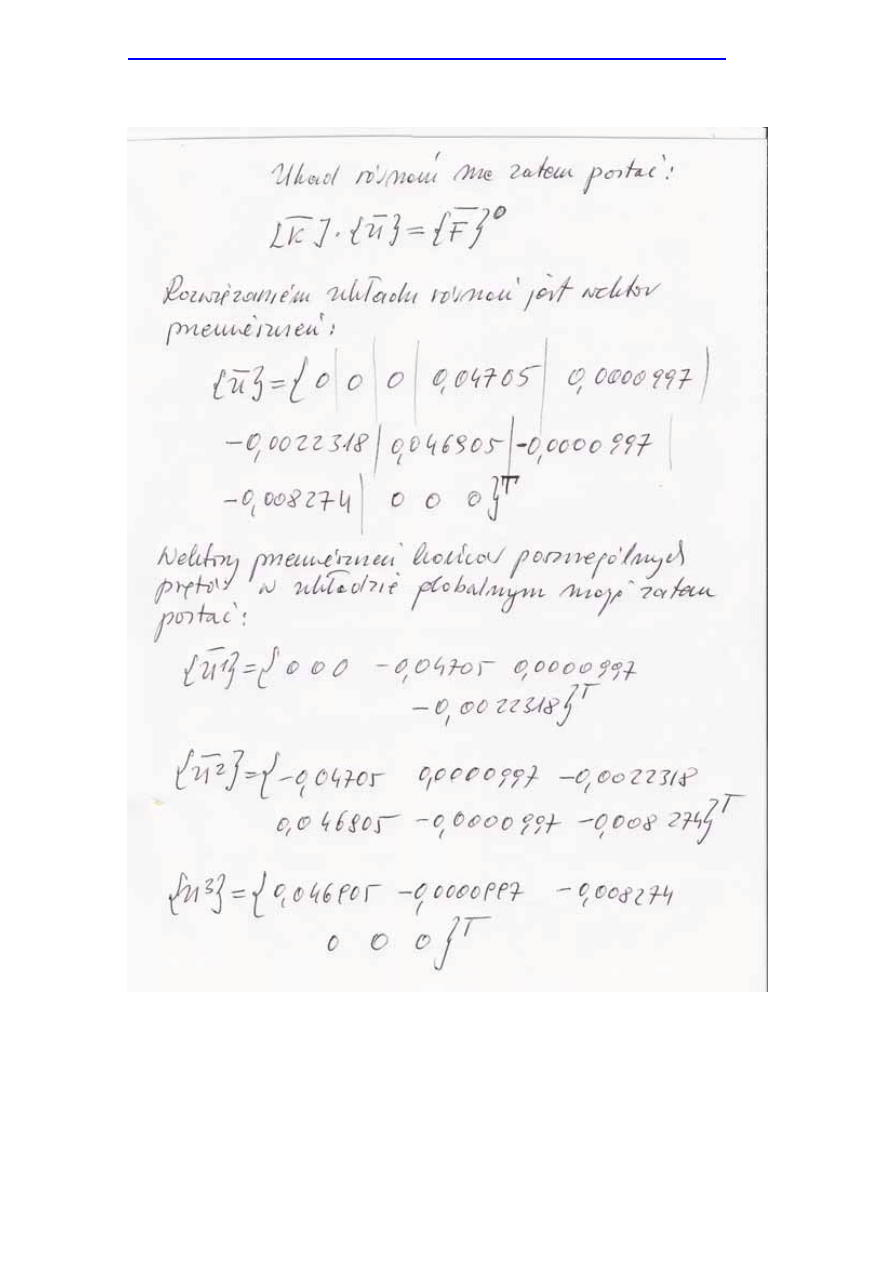 Układ równań ma zatem postać:
[K̅]·{u̅}={F̅}⁰
Rozwiązaniem układu równań jest wektor
przemieszczeń:
{u̅}={0|0|0|0,04705|0,0000997|
-0,0022318|0,046905|-0,0000997|
-0,008274|0 0 0}ᵀ
Wektory przemieszczeń końców poszczególnych
prętów w układzie globalnym mają zatem
postać:
{u̅¹}={0 0 0 -0,04705 0,0000997
-0,0022318}ᵀ
{u̅²}={-0,04705 0,0000997 -0,0022318
0,046905 -0,0000997 -0,008274}ᵀ
{u̅³}={0,046905 -0,0000997 -0,008274
0 0 0}ᵀ